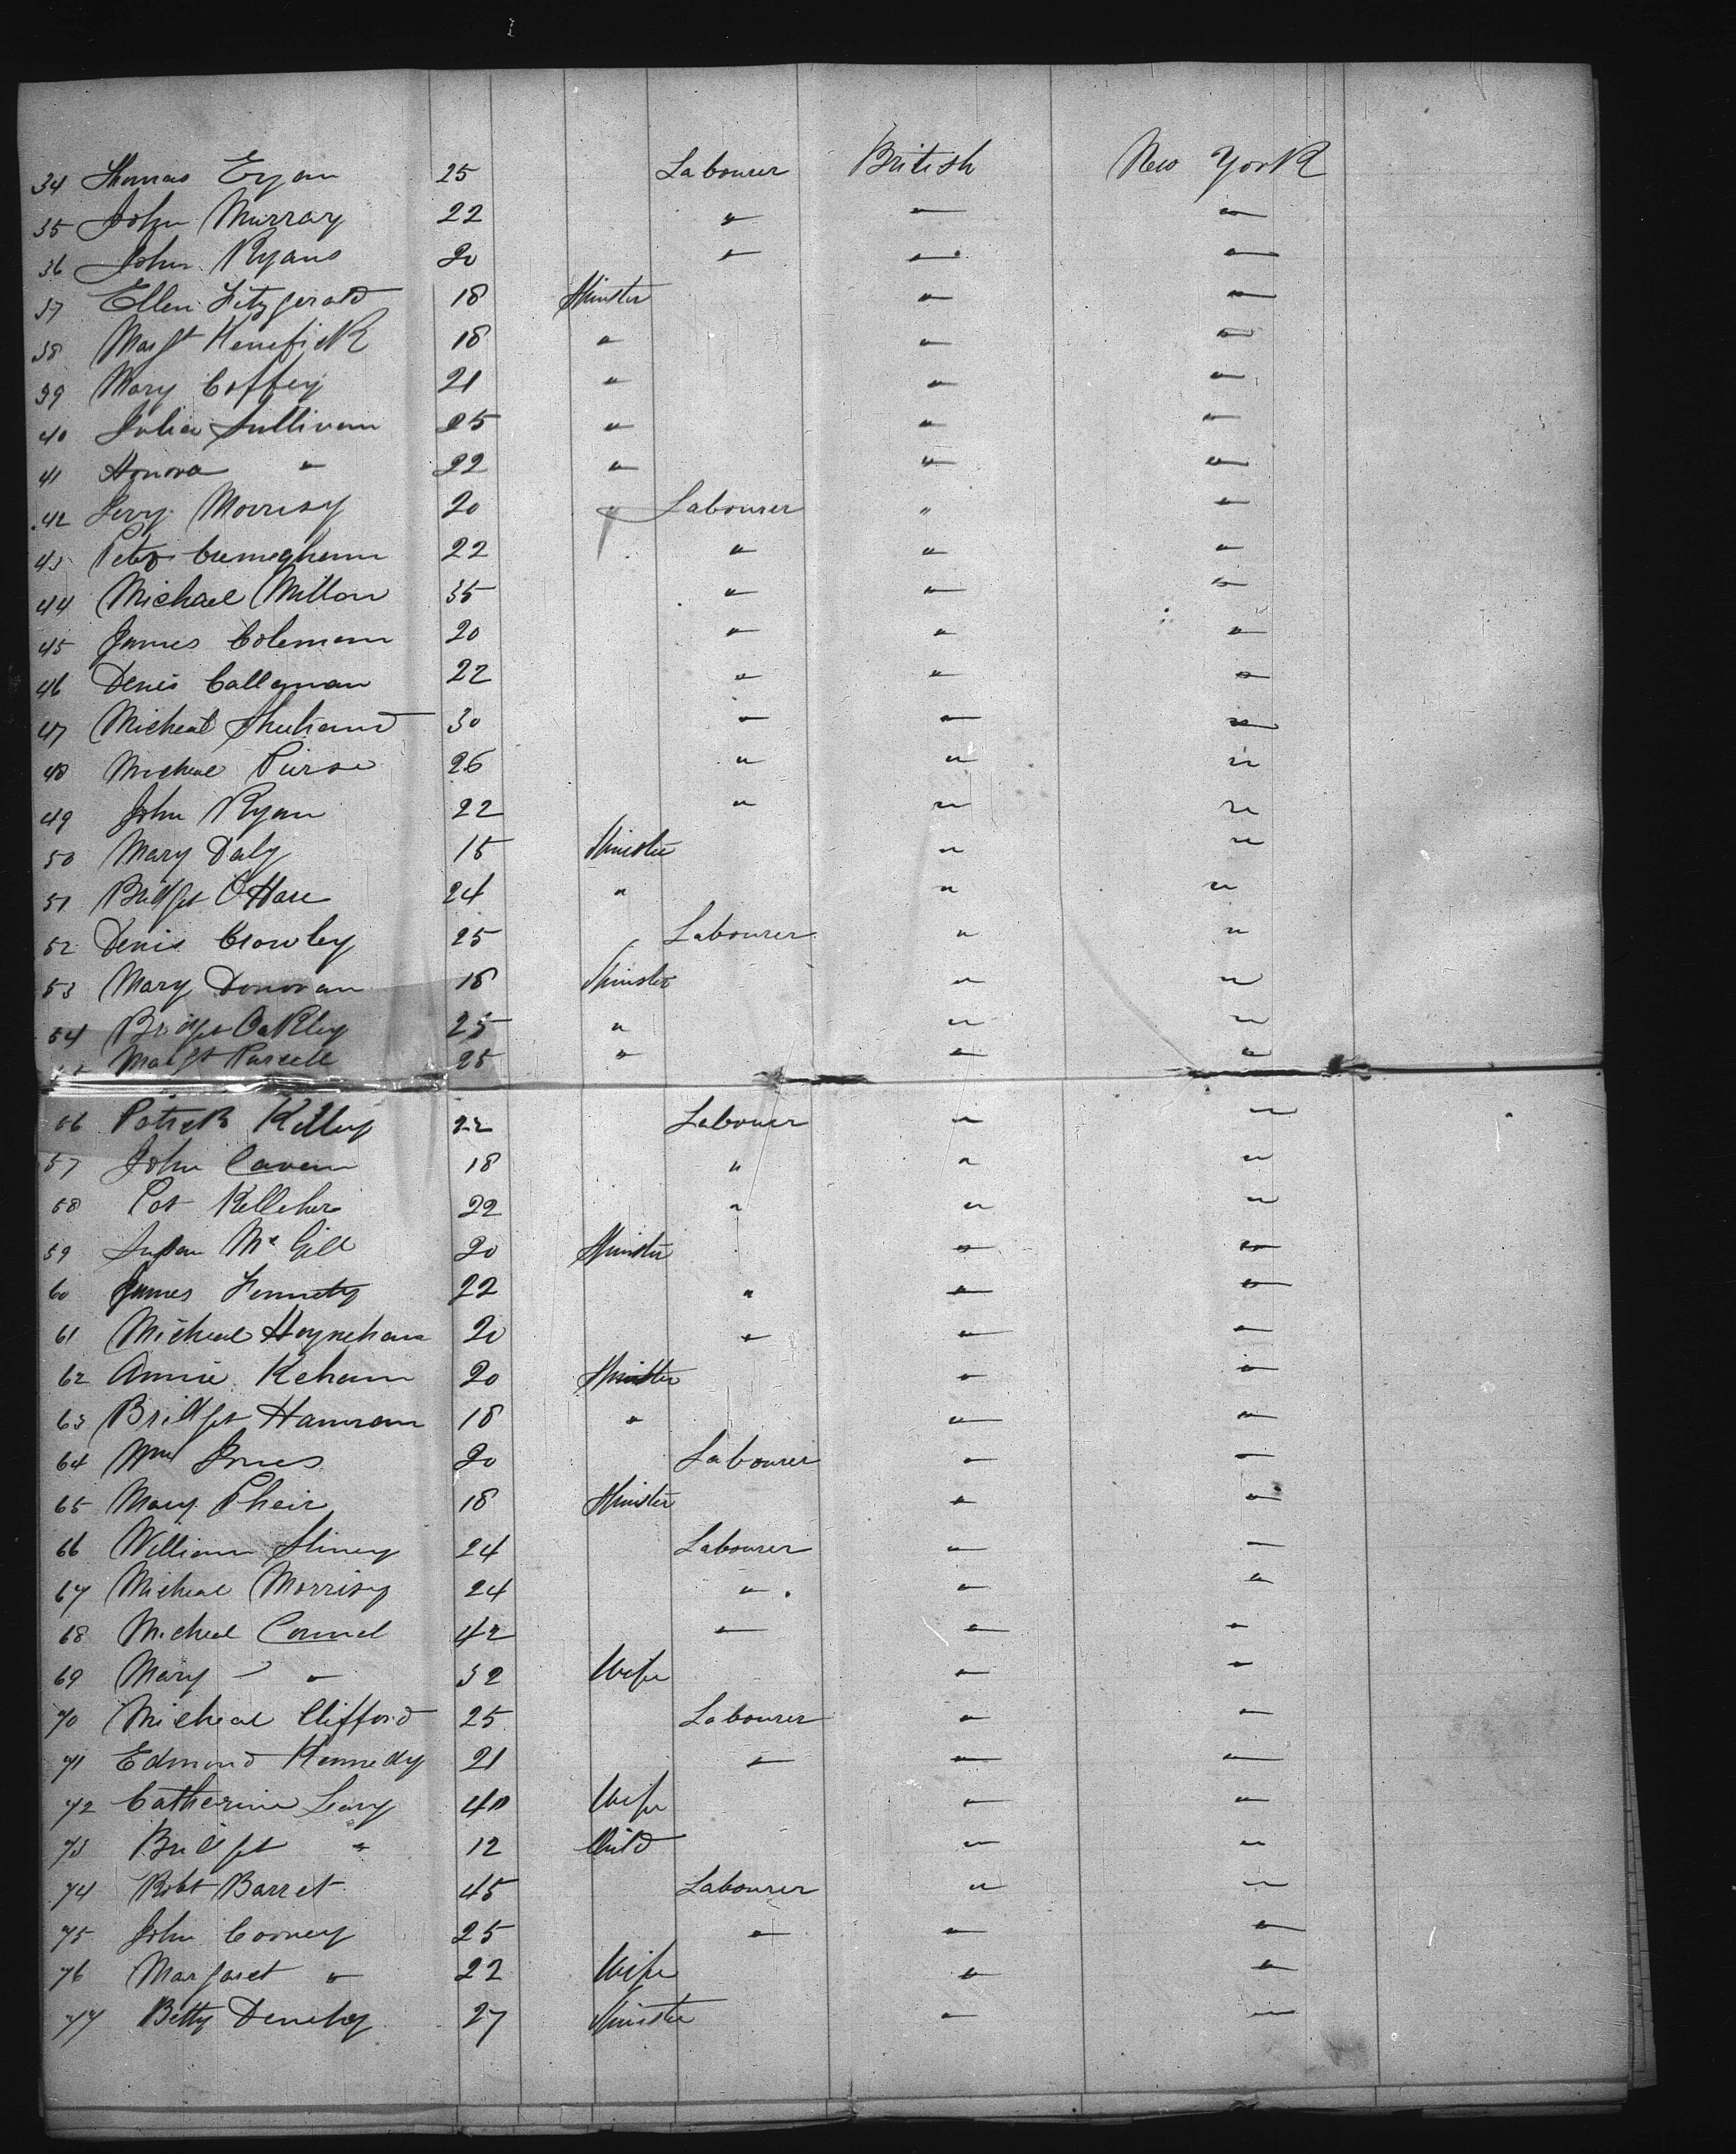 34 Thomas Eryan 25 Labourer British New York
35 John Murray 22 " " "
36 John Ryans 20 " " "
37 Ellen Fitzgerald 18 Spinster " "
38 Margt Kenefick 18 " " "
39 Mary Coffey 21 " " "
40 Julia Sullivan 25 " " "
41 Honora " 22 " " "
42 Morrisy 20 " Labourer " "
43 Peter 22 " " "
44 Michael Millon 35 " " "
45 James Coleman 20 " " "
46 Denis Callaman 22 " " "
47 Micheal 30 " " "
48 Micheal Pierse 26 " " "
49 John Ryan 22 " " "
50 Mary Daly 18 Spinster " "
51 Bridget O'Hare 24 " " "
52 Denis Crowley 25 Labourer " "
53 Mary Donovan 18 Spinster " "
54 Bridget Oakley 25 " " "
Margt Pursell 25 " " "
56 Patrick Kelly 22 Labourer " "
57 John Cavan 18 " " "
58 Pat Kelleher 22 " " "
59 Susan McGill 20 Spinster " "
60 James 22 " " "
61 Micheal 20 " " "
62 Annie Kehan 20 Spinster " "
63 Bridget Hanran 18 " " "
64 Wm Jones 20 Labourer " "
65 Mary Pheir 18 Spinster " "
66 William Sliney 24 Labourer " "
67 Micheal Morrisy 24 " " "
68 Micheal Connel 42 " " "
69 Mary " 32 Wife " "
70 Micheal Clifford 25 Labourer " "
71 Edmond Kennedy 21 " " "
72 Catherine Leary 40 Wife " "
73 Bridget " 12 Child " "
74 Robt Barret 45 Labourer " "
75 John Cooney 25 " " "
76 Margaret " 22 Wife " "
77 Betty Denehy 27 Spinster " "